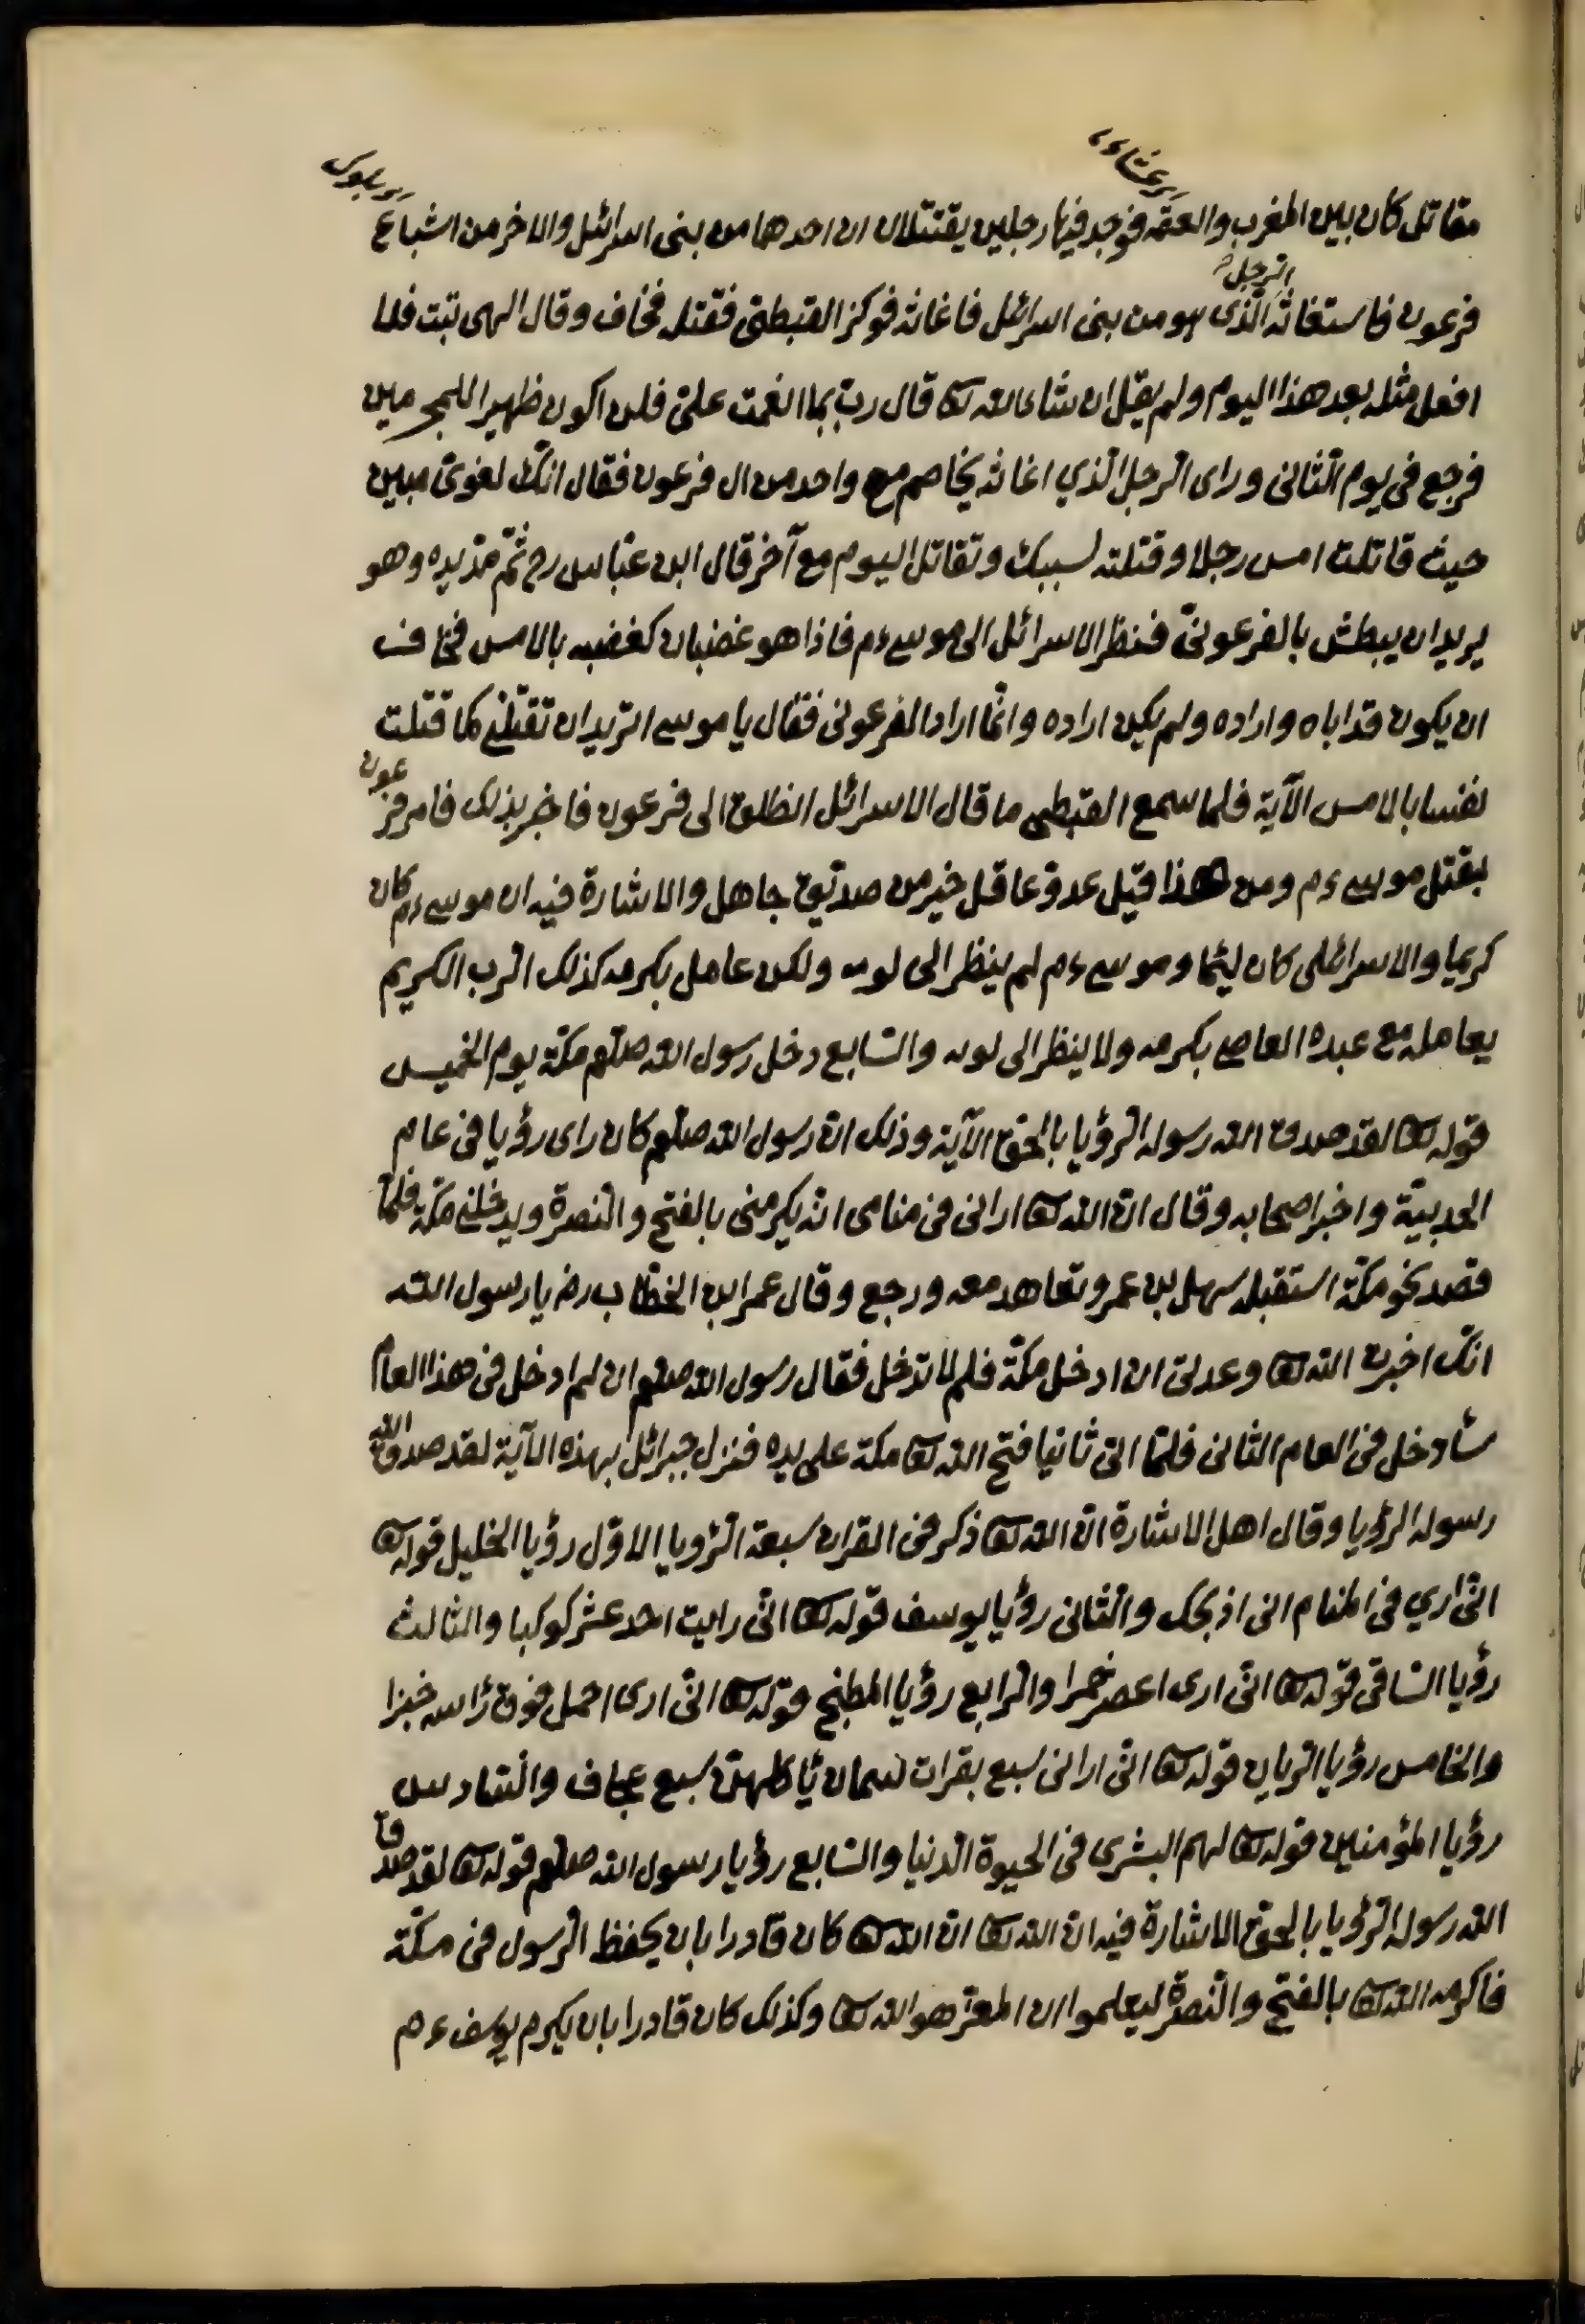 مقاتل كان بين المغرب والعتمه فوجد فيها رجلين يقتتلان ان احدهما من بنى اسرائل والاخر من اشباع
فرعون فاستغاثه الرجل الذى هو من بنى اسرائل فاغاثه فوكز القبطىّ فقتله فخاف وقال الهى تبت فلا
افعل مثله بعد هذا اليوم ولم يقل ان شاء الله تعا قال ربّ بما انعمت علىّ فلن اكون ظهيرا للمجرمين
فرجع فى يوم الثّانى وراى الرجل الذي اغاثه يخاصم مع واحد من ال فرعون فقال انّك لغوىّ مبين
حيث قاتلت امس رجلا وقتلته لسببك وتقاتل اليوم مع آخر قال ابن عبّاس رح ثمّ مدّ يده وهو
يريد ان يبطش بالفرعونىّ فنظر الاسرائل الى موسى ءم فاذا هو غضبان كغضبه بالامس فخاف
ان يكون قد اباه واراده ولم يكن اراده وانّما اراد الفرعونى فقال يا موسى اتريد ان تقتلنى كما قتلت
نفسا بالامس الآية فلما سمع القبطى ما قال الاسرائل انطلق الى فرعون فاخبر بذلك فامر فرعون
بقتل موسى ءم ومن هذا قيل عدوّ عاقل خير من صديق جاهل والاشارة فيه ان موسى ءم كان
كريما والاسرائلى كان لئيما وموسى ءم لم ينظر الى لومه ولكن عامل بكرمه كذلك الرب الكريم
يعامله مع عبده العاصى بكرمه ولا ينظر الى لومه والسّابع دخل رسول الله صلعم مكّة يوم الخميس
قوله تعا لقد صدق الله رسوله الرؤيا بالحقّ الآية وذلك انّ رسول الله صلعم كان راى رؤيا فى عام
الحديبيّة واخبر اصحابه وقال انّ الله تعا ارانى فى منامى انّه يكرمنى بالفتح والنّصرة ويدخلنى مكّة فلمّا
قصد نحو مكّة استقبله سهل بن عمرو تعاهد معه ورجع وقال عمر ابن الخطّاب رض يا رسول الله
انّك اخبرت الله تعا وعدلى ان ادخل مكّة فلم لا تدخل فقال رسول الله صلعم ان لم ادخل فى هذا العام
سأدخل فى العام الثّانى فلمّا اتى ثانيا فتح الله تعا مكة على يده فنزل جبرائل بهذه الآية لقد صدق الله
رسوله الرؤيا وقال اهل الاشارة انّ الله تعا ذكر فى القران سبعة الرّؤيا الاوّل رؤيا الخليل قوله تعا
انّى اري فى المنام انى اذبحك والثّانى رؤيا يوسف قوله تعا انّى رايت احد عشر كوكبا والثالث
رؤيا السّاقى قوله تعا انّى ارى اعصر خمرا والرّابع رؤيا المطبخ قوله تعا انّى ارى احمل فوق رأسى خبزا
والخامس رؤيا الريان قوله تعا انّى ارانى سبع بقرات سمان يأكلهنّ سبع عجاف والسّادس
رؤيا المؤمنين قوله تعا لهم البشرى فى الحيوة الدنيا والسّابع رؤيا رسول الله صلعم قوله تعا لقد صدق
الله رسوله الرؤيا بالحقّ الاشارة فيه انّ الله تعا انّ الله تعا كان قادرا بان يحفظ الرسول فى مكّة
فاكرمه الله تعا بالفتح والنّصرة ليعلموا ان المعزّ هو الله تعا وكذلك كان قادرا بان يكرم يوسف ءم